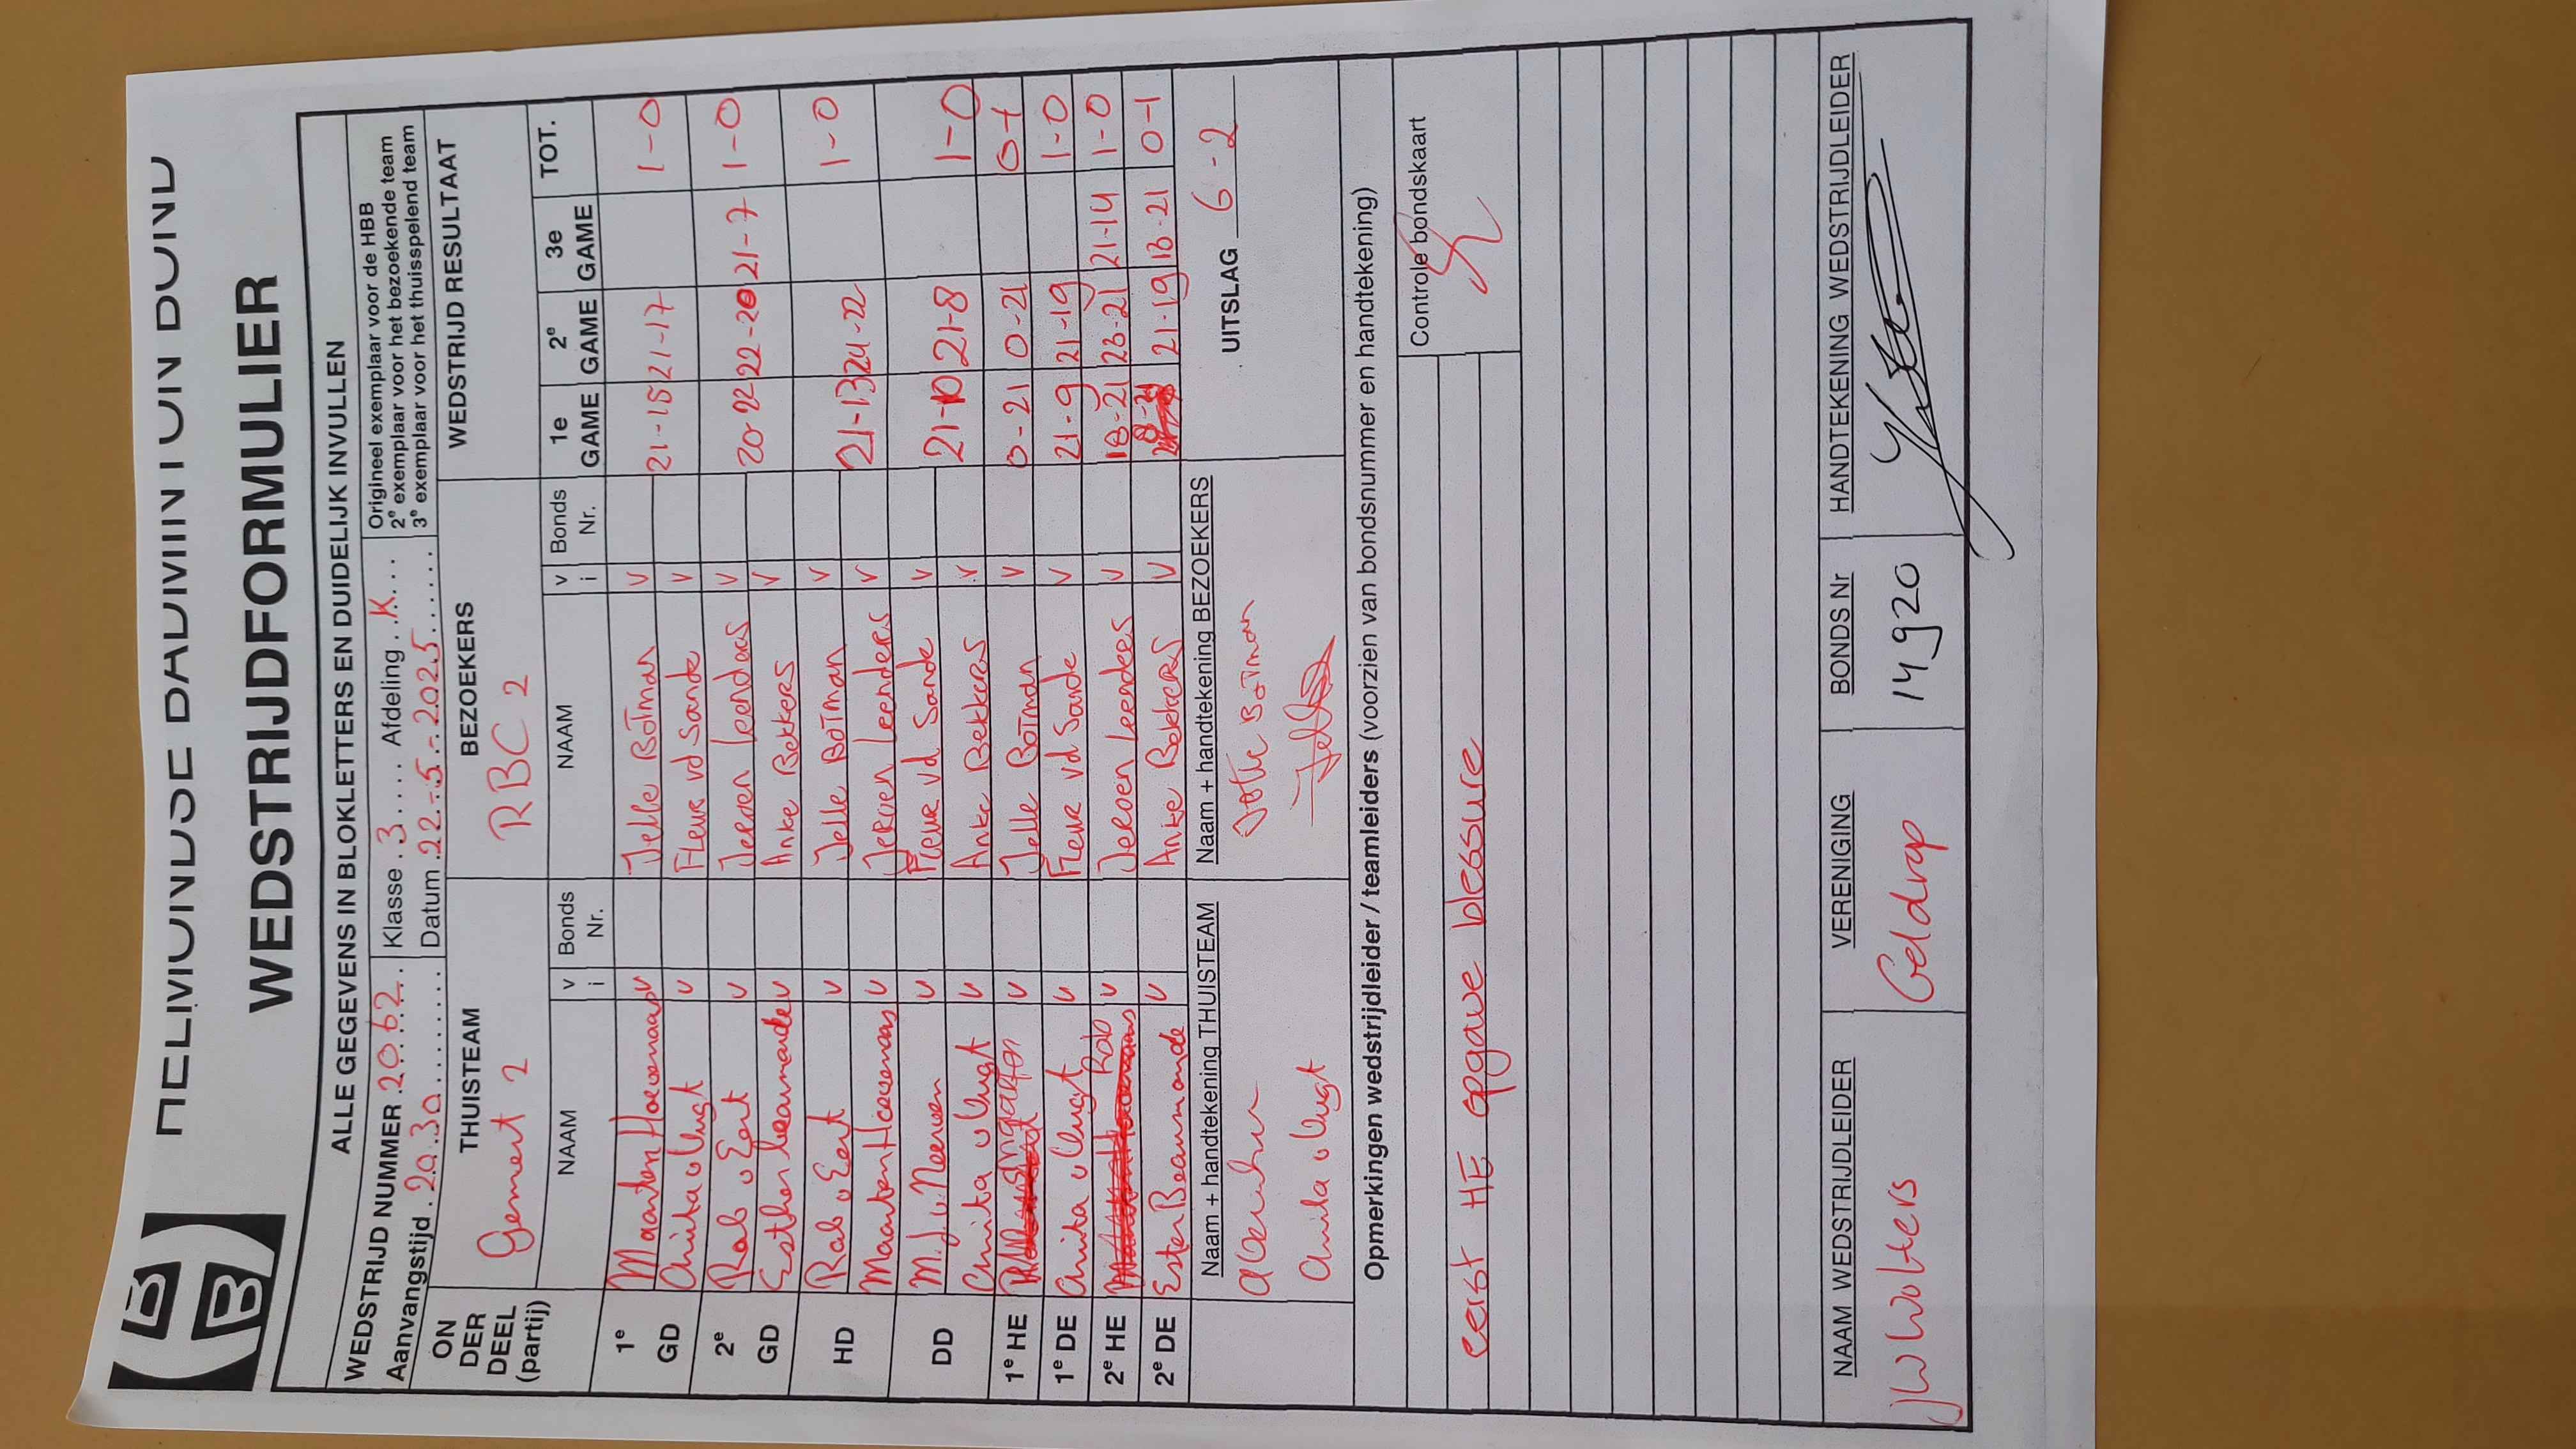 HELMONDSE BADMINTON BOND
WEDSTRIJDFORMULIER
ALLE GEGEVENS IN BLOKLETTERS EN DUIDELIJK INVULLEN
WEDSTRIJD NUMMER 2062 Klasse 3 Afdeling K Origineel exemplaar voor de HBB
2e exemplaar voor het bezoekende team
Aanvangstijd 20.30 Datum 22-5-2025 3e exemplaar voor het thuisspelend team
ON DER DEEL (partij) THUISTEAM BEZOEKERS WEDSTRIJD RESULTAAT
Gemert 2 RBC 2
NAAM v i Bonds Nr. NAAM v i Bonds Nr. 1e GAME 2e GAME 3e GAME TOT.
1e GD Maarten Hoevenaars v Jelle Botman v 21-15 21-17 1-0
Anita v Vugt v Fleur vd Sande v
2e GD Rob v Eert v Jeroen Leenders v 20-22 22-20 21-7 1-0
Esther v Anke Bekkers v
HD Rob v Eert v Jelle Botman v 21-13 24-22 1-0
Maarten Hoevenaars v Jeroen Leenders v
DD M.J. v. Neerven v Fleur vd Sande v 21-10 21-8 1-0
Anita v Vugt v Anke Bekkers v
1e HE v Jelle Botman v 0-21 0-21 0-1
1e DE Anita v Vugt v Fleur vd Sande v 21-9 21-19 1-0
2e HE Rob v Jeroen Leenders v 18-21 23-21 21-14 1-0
2e DE Ester v Anke Bekkers v 21-19 18-21 0-1
Naam + handtekening THUISTEAM Naam + handtekening BEZOEKERS UITSLAG 6-2
Anita v Vugt Botman
Opmerkingen wedstrijdleider / teamleiders (voorzien van bondsnummer en handtekening)
Controle bondskaart
eerst HE opgave blessure
NAAM WEDSTRIJDLEIDER VERENIGING BONDS Nr HANDTEKENING WEDSTRIJDLEIDER
JW Wolters Geldrop 14920